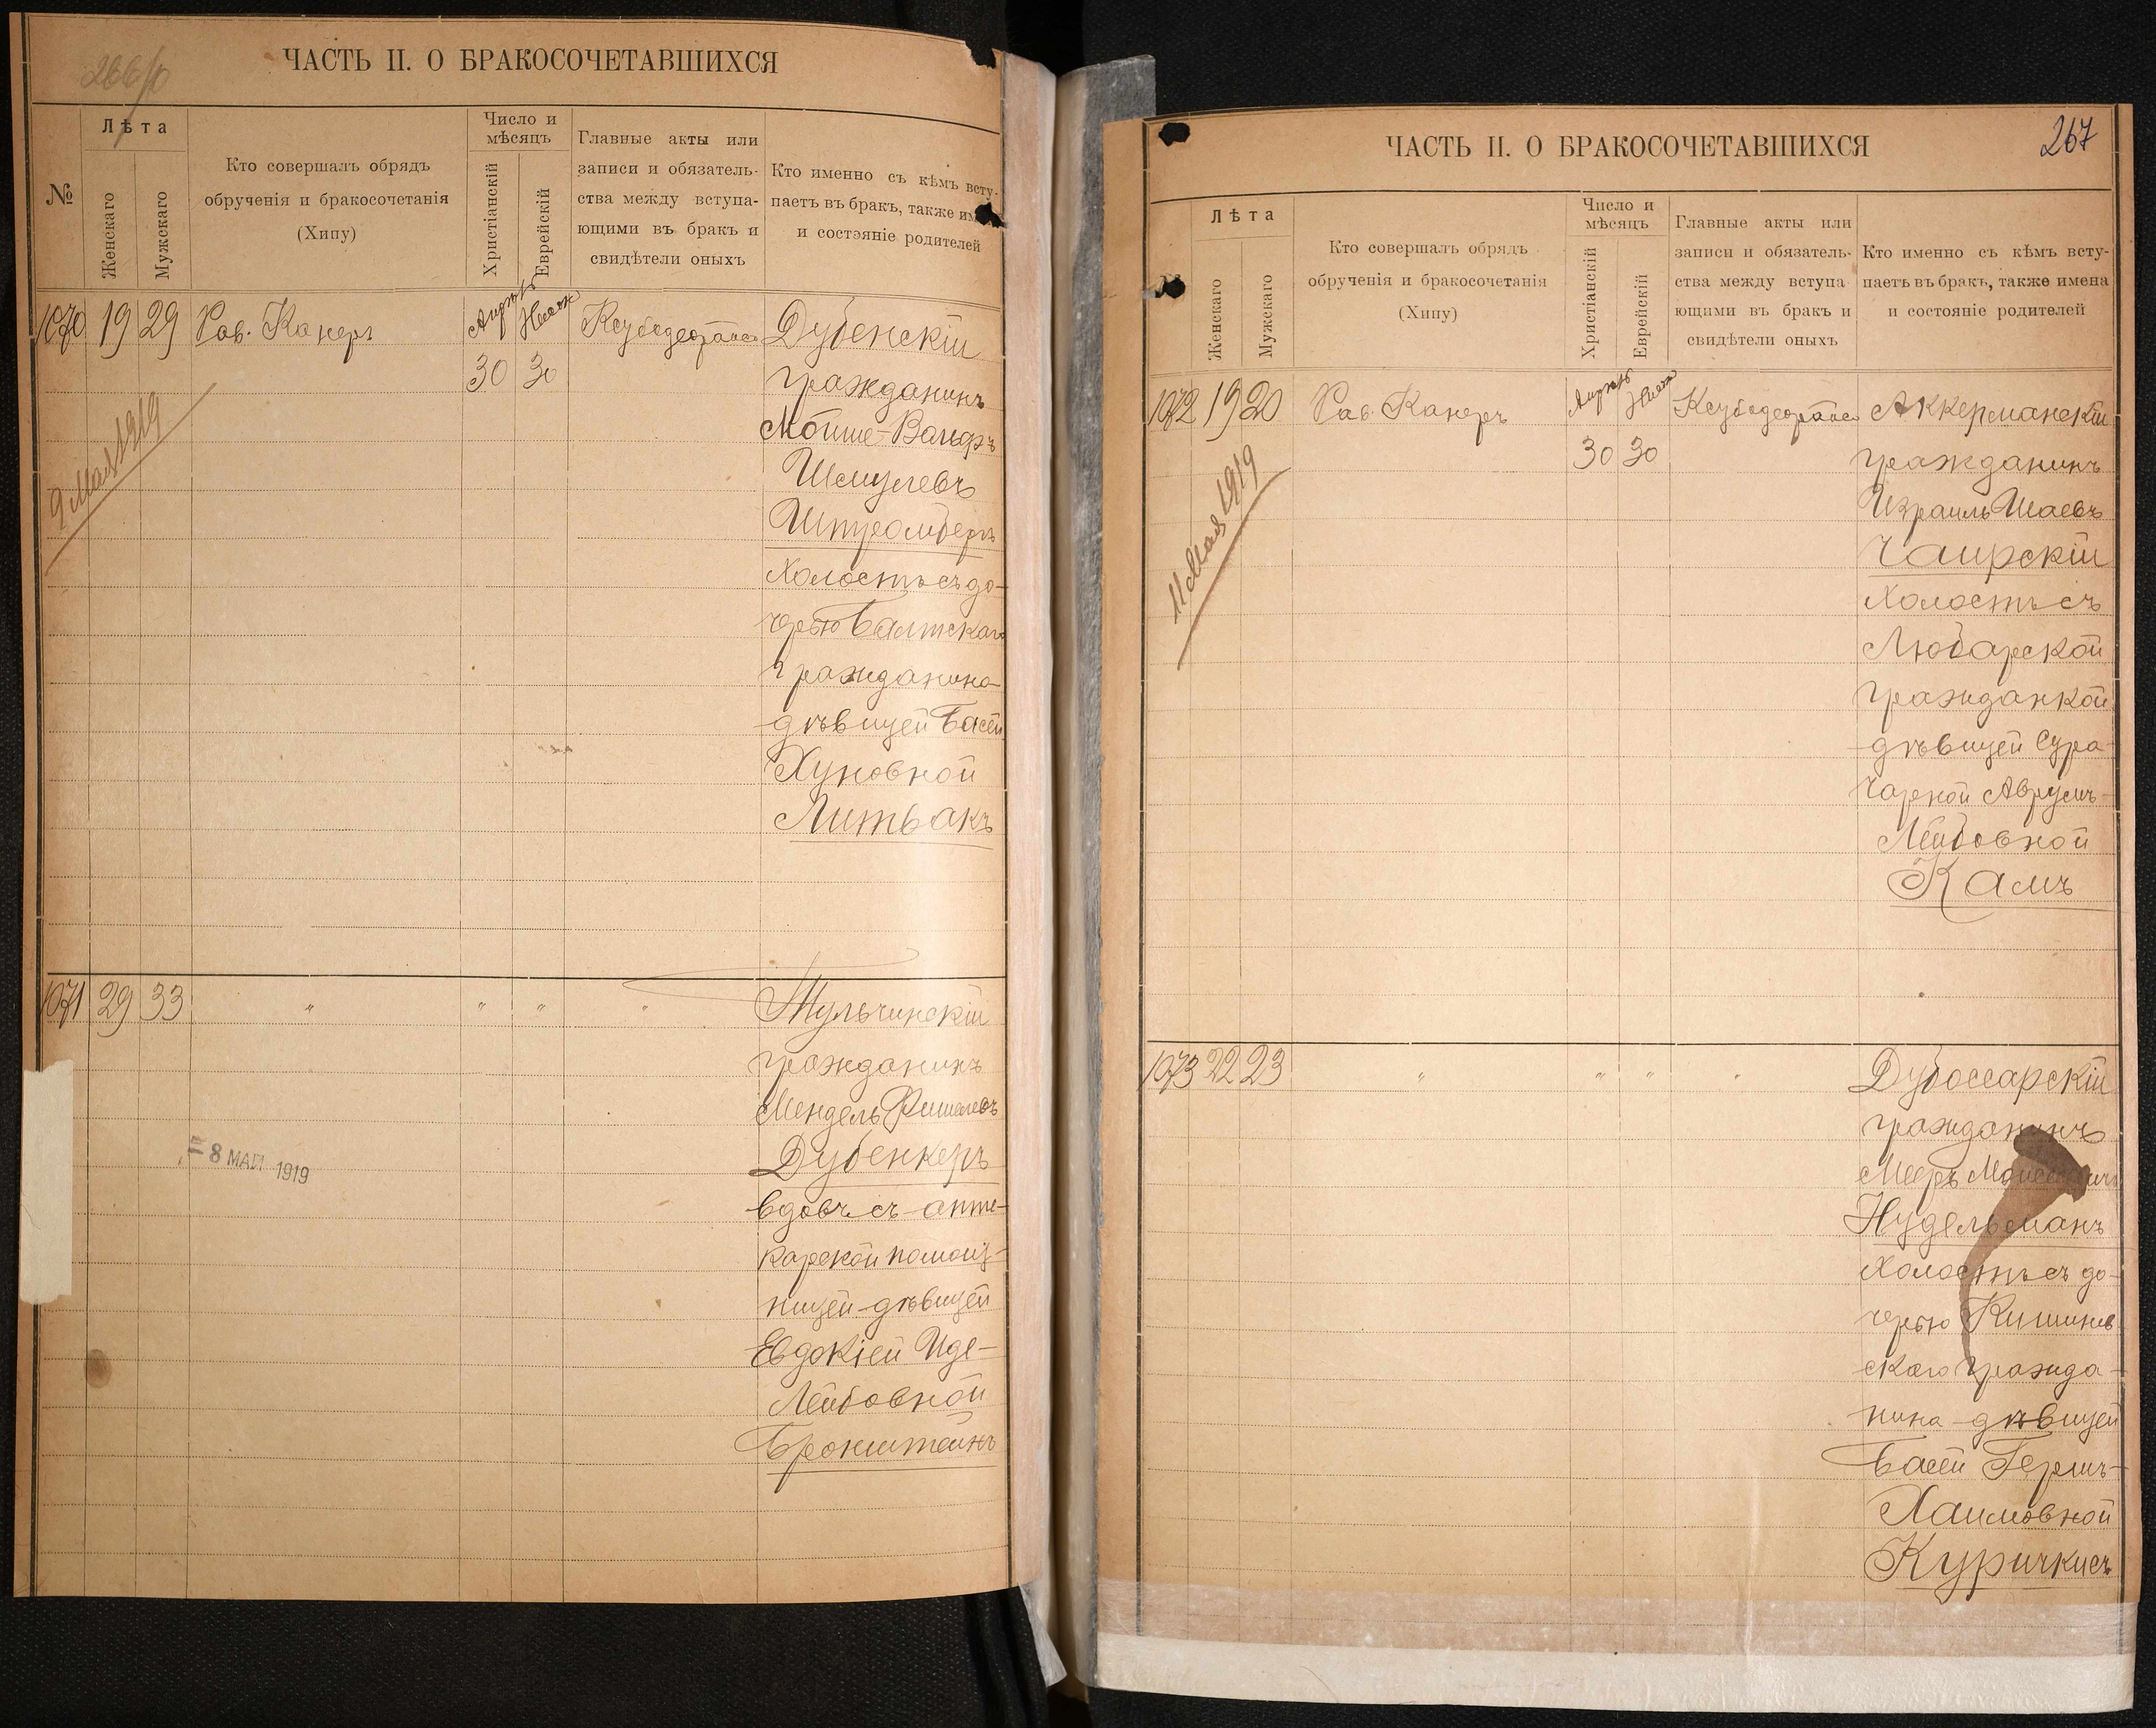 266/о
ЧАСТЬ II. О БРАКОСОЧЕТАВШИХСЯ
№
Лѣта
Женскаго
Мужскаго
Кто совершалъ обрядъ
обрученія и бракосочетанія
(Хипу)
Число и
мѣсяцъ
Христіанскій
Еврейскій
Главные акты или
записи и обязатель-
ства между вступа-
ющими въ бракъ и
свидѣтели оныхъ
Кто именно съ кѣмъ всту-
паетъ въ бракъ, также им
и состояніе родителей
1070 19 29 Рав. Канеръ Апрѣль Нисан Дубенскій
30 30
гражданинъ
Мойше-Вольфъ
Шмулевъ
Штромберъ
холостъ съ до-
черью Балтскаго
гражданина
дѣвицей Басей
Хуновной
Литвакъ
9 Мая 1919
1071 29 33 " " " " Тульчинскій
гражданинъ
Мендель Фишелевъ
Дубенкеръ
вдовъ съ апте-
карской помощ-
ницей-дѣвицей
Евдокіей Иде-
Лейбовной
Бронштейнъ
= 8 МАЙ 1919
267
ЧАСТЬ II. О БРАКОСОЧЕТАВШИХСЯ
Лѣта
Женскаго
Мужскаго
Кто совершалъ обрядъ
обрученія и бракосочетанія
(Хипу)
Число и
мѣсяцъ
Христіанскій
Еврейскій
Главные акты или
записи и обязатель-
ства между вступа
ющими въ бракъ и
свидѣтели оныхъ
Кто именно съ кѣмъ всту-
паетъ въ бракъ, также имена
и состояніе родителей
1072 19 20 Рав. Канеръ Апрѣль Нисан Аккерманскій
30 30
гражданинъ
Израиль Шаевъ
Чаирскій
холостъ съ
Любарской
гражданкой
дѣвицей Сура
Чарной Аврумъ-
Лейбовной
Камъ
11 Мая 1919
1073 22 23 " " " " Дубоссарскій
гражданинъ
Мееръ
Нудельманъ
холостъ съ до-
черью Кишинев
скаго гражда-
нина-дѣвицей
Басей Гершъ-
Хаимовной
Куричкисъ